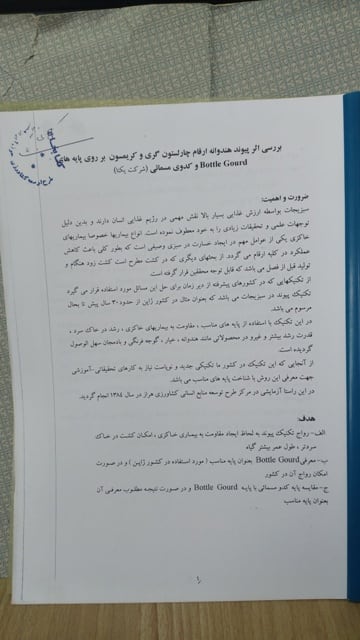 بررسی اثر پیوند هندوانه ارقام چارلستون گری و کریمسون بر روی پایه های
Bottle Gourd و کدوی مسمائی (شرکت یکتا)
ضرورت و اهمیت:
سبزیجات بواسطه ارزش غذایی بسیار بالا نقش مهمی در رژیم غذایی انسان دارند و بدین دلیل
توجهات علمی و تحقیقات زیادی را به خود معطوف نموده است. انواع بیماریها خصوصا بیماریهای
خاکزی یکی از عوامل مهم در ایجاد خسارت در سبزی وصیفی است که بطور کلی باعث کاهش
عملکرد در کلیه ارقام می گردد. از بحثهای دیگری که در کشت مطرح است کشت زود هنگام و
تولید قبل از فصل می باشد که قابل توجه محققین قرار گرفته است
از تکنیکهایی که در کشورهای پیشرفته از دیر زمان برای حل این مسائل مورد استفاده قرار می گیرد
تکنیک پیوند در سبزیجات می باشد که بعنوان مثال در کشور ژاپن از حدود ۳۰ سال پیش تا بحال
مرسوم می باشد.
در این تکنیک با استفاده از پایه های مناسب ، مقاومت به بیماریهای خاکزی ، رشد در خاک سرد ،
قدرت رشد بیشتر و غیره در محصولاتی مانند هندوانه ، خیار ، گوجه فرنگی و بادمجان سهل الوصول
گردیده است.
از آنجایی که این تکنیک در کشور ما تکنیکی جدید و نوپاست نیاز به کارهای تحقیقاتی -آموزشی
جهت معرفی این روش با شناخت پایه های مناسب می باشد.
در این راستا آزمایشی در مرکز طرح توسعه منابع انسانی کشاورزی هراز در سال ۱۳۸٤ انجام گردید.
هدف:
الف- رواج تکنیک پیوند به لحاظ ایجاد مقاومت به بیماری خاکزی ، امکان کشت در خاک
سردتر ، طول عمر بیشتر گیاه
ب- معرفی Bottle Gourd بعنوان پایه مناسب ( مورد استفاده در کشور ژاپن ) و در صورت
امکان رواج آن در کشور
ج- مقایسه پایه کدو مسمائی با پایه Bottle Gourd و در صورت نتیجه مطلوب معرفی آن
بعنوان پایه مناسب
۱